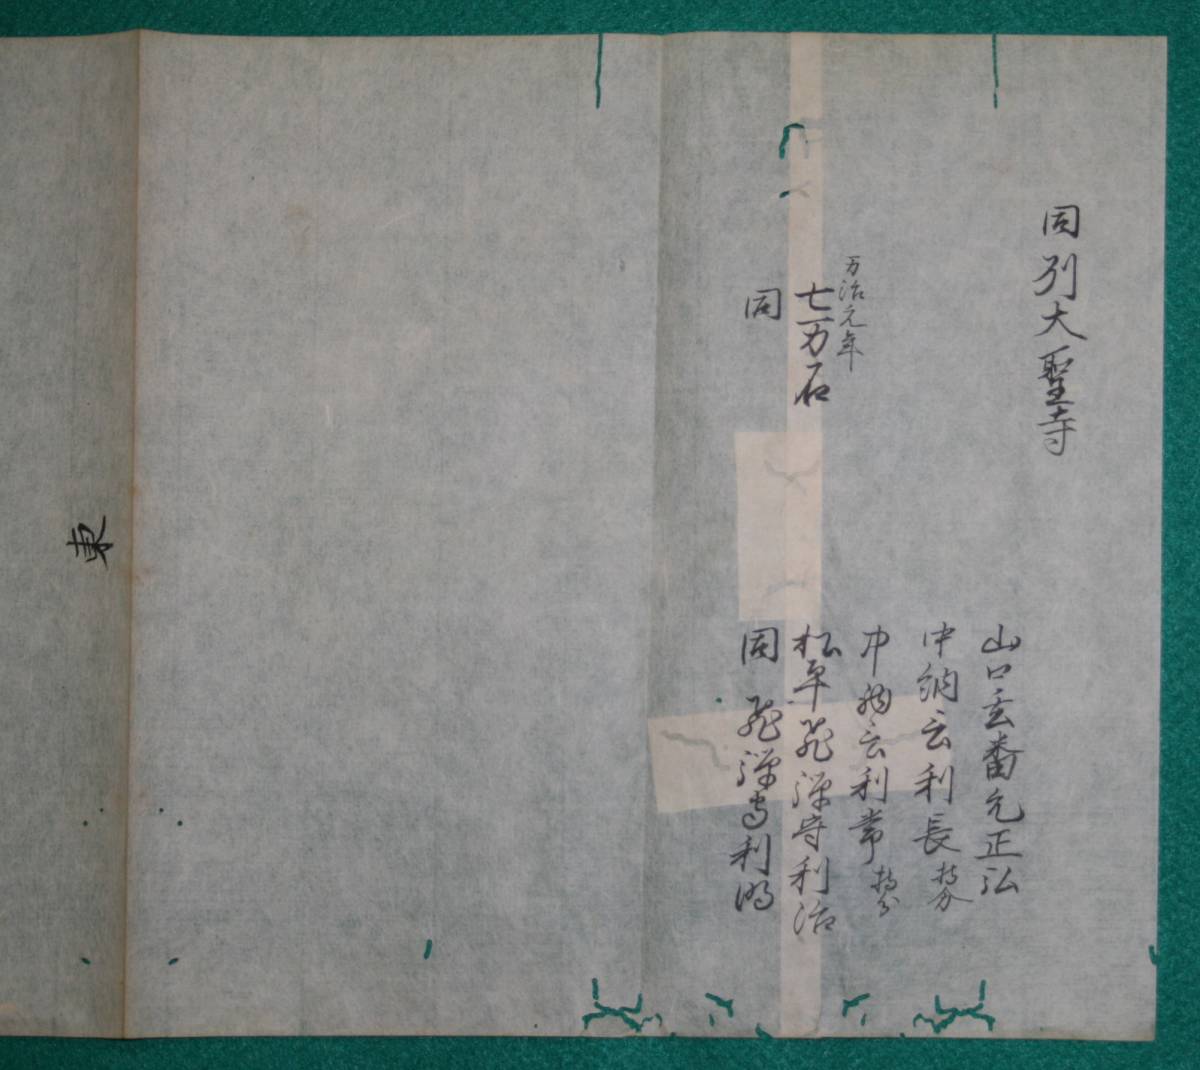 同列大聖寺
山口玄蕃允正弘
中納言利長 持分
中納言利常 持分
万治元年
七万石 松平飛弾守利治
同 同 飛弾守利明
東